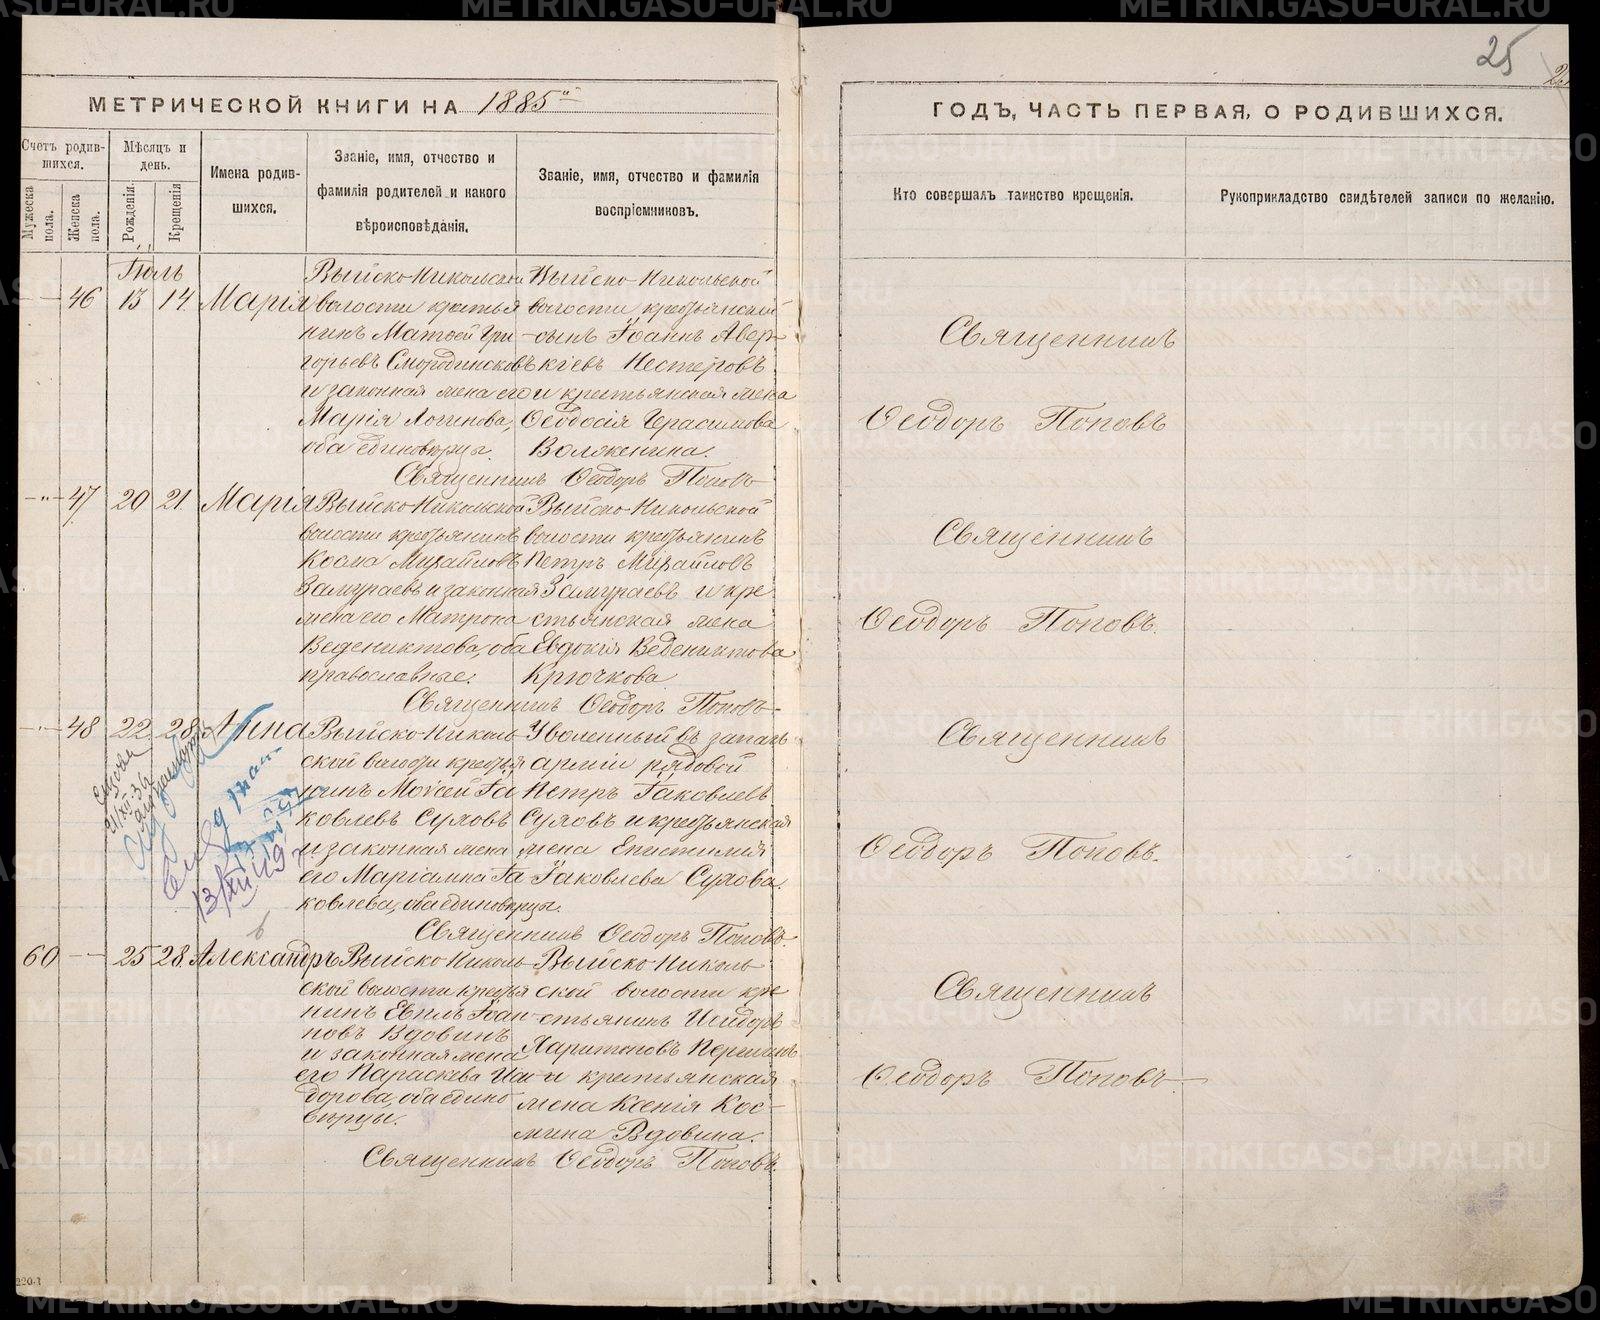 25
МЕТРИЧЕСКОЙ КНИГИ НА 1885й
ГОДЪ, ЧАСТЬ ПЕРВАЯ, О РОДИВШИХСЯ.
Счетъ родившихся.
Мужеска пола.
Женска пола.
Мѣсяцъ и день.
Рожденія.
Крещенія
Имена родившихся.
Званіе, имя, отчество и фамилія родителей и какого вѣроисповѣданія.
Званіе, имя, отчество и фамилія воспріемниковъ.
Кто совершалъ таинство крещенія.
Рукоприкладство свидѣтелей записи по желанію.
Іюль
46 13 14 Марія
Выйско-Никольской
волости крестья
нинъ Матѳей Гри-
горьевъ Смородинсковъ
и законная жена его
Марія Логинова,
оба единовѣрцы.
Выйско-Никольской
волости крестьянскій
сынъ Іоаннъ Авер-
кіевъ Нестеровъ
и крестьянская жена
Ѳеодосія Герасимова
Волженина.
Священникъ Ѳеодоръ Поповъ
Священникъ
Ѳеодоръ Поповъ
47 20 21 Марія
Выйско-Никольской
волости крестьянинъ
Косма Михайловъ
Замураевъ и законная
жена его Матрона
Веденихтова, оба
православные.
Выйско-Никольской
волости крестьянинъ
Петръ Михайловъ
Замураевъ и кре
стьянская жена
Евдокія Веденихтова
Крючкова
Священникъ Ѳеодоръ Поповъ
Священникъ
Ѳеодоръ Поповъ.
48 22 28 Анна
Выйско-Николь
ской волости крестья
нинъ Моѵсей Іа
ковлевъ Суховъ
и законная жена
его Маріамна Іа
ковлева, оба единовѣрцы.
Уволенный въ запасъ
арміи рядовой
Петръ Іаковлевъ
Суховъ и крестьянская
жена Епистимія
Іаковлева Сухова.
Священникъ Ѳеодоръ Поповъ.
Священникъ
Ѳеодоръ Поповъ.
13/XII 49
60 25 28 Александръ
Выйско-Николь
ской волости крестья
нинъ Евплъ Іоан-
новъ Вдовинъ
и законная жена
его Параскева Иси-
дорова, оба едино
вѣрцы.
Выйско-Николь
ской волости кре
стьянинъ Исидоръ
Харитоновъ Першинъ
и крестьянская
жена Ксенія Кос-
мина Вдовина.
Священникъ Ѳеодоръ Поповъ.
Священникъ
Ѳеодоръ Поповъ
220-1
METRIKI.GASO-URAL.RU